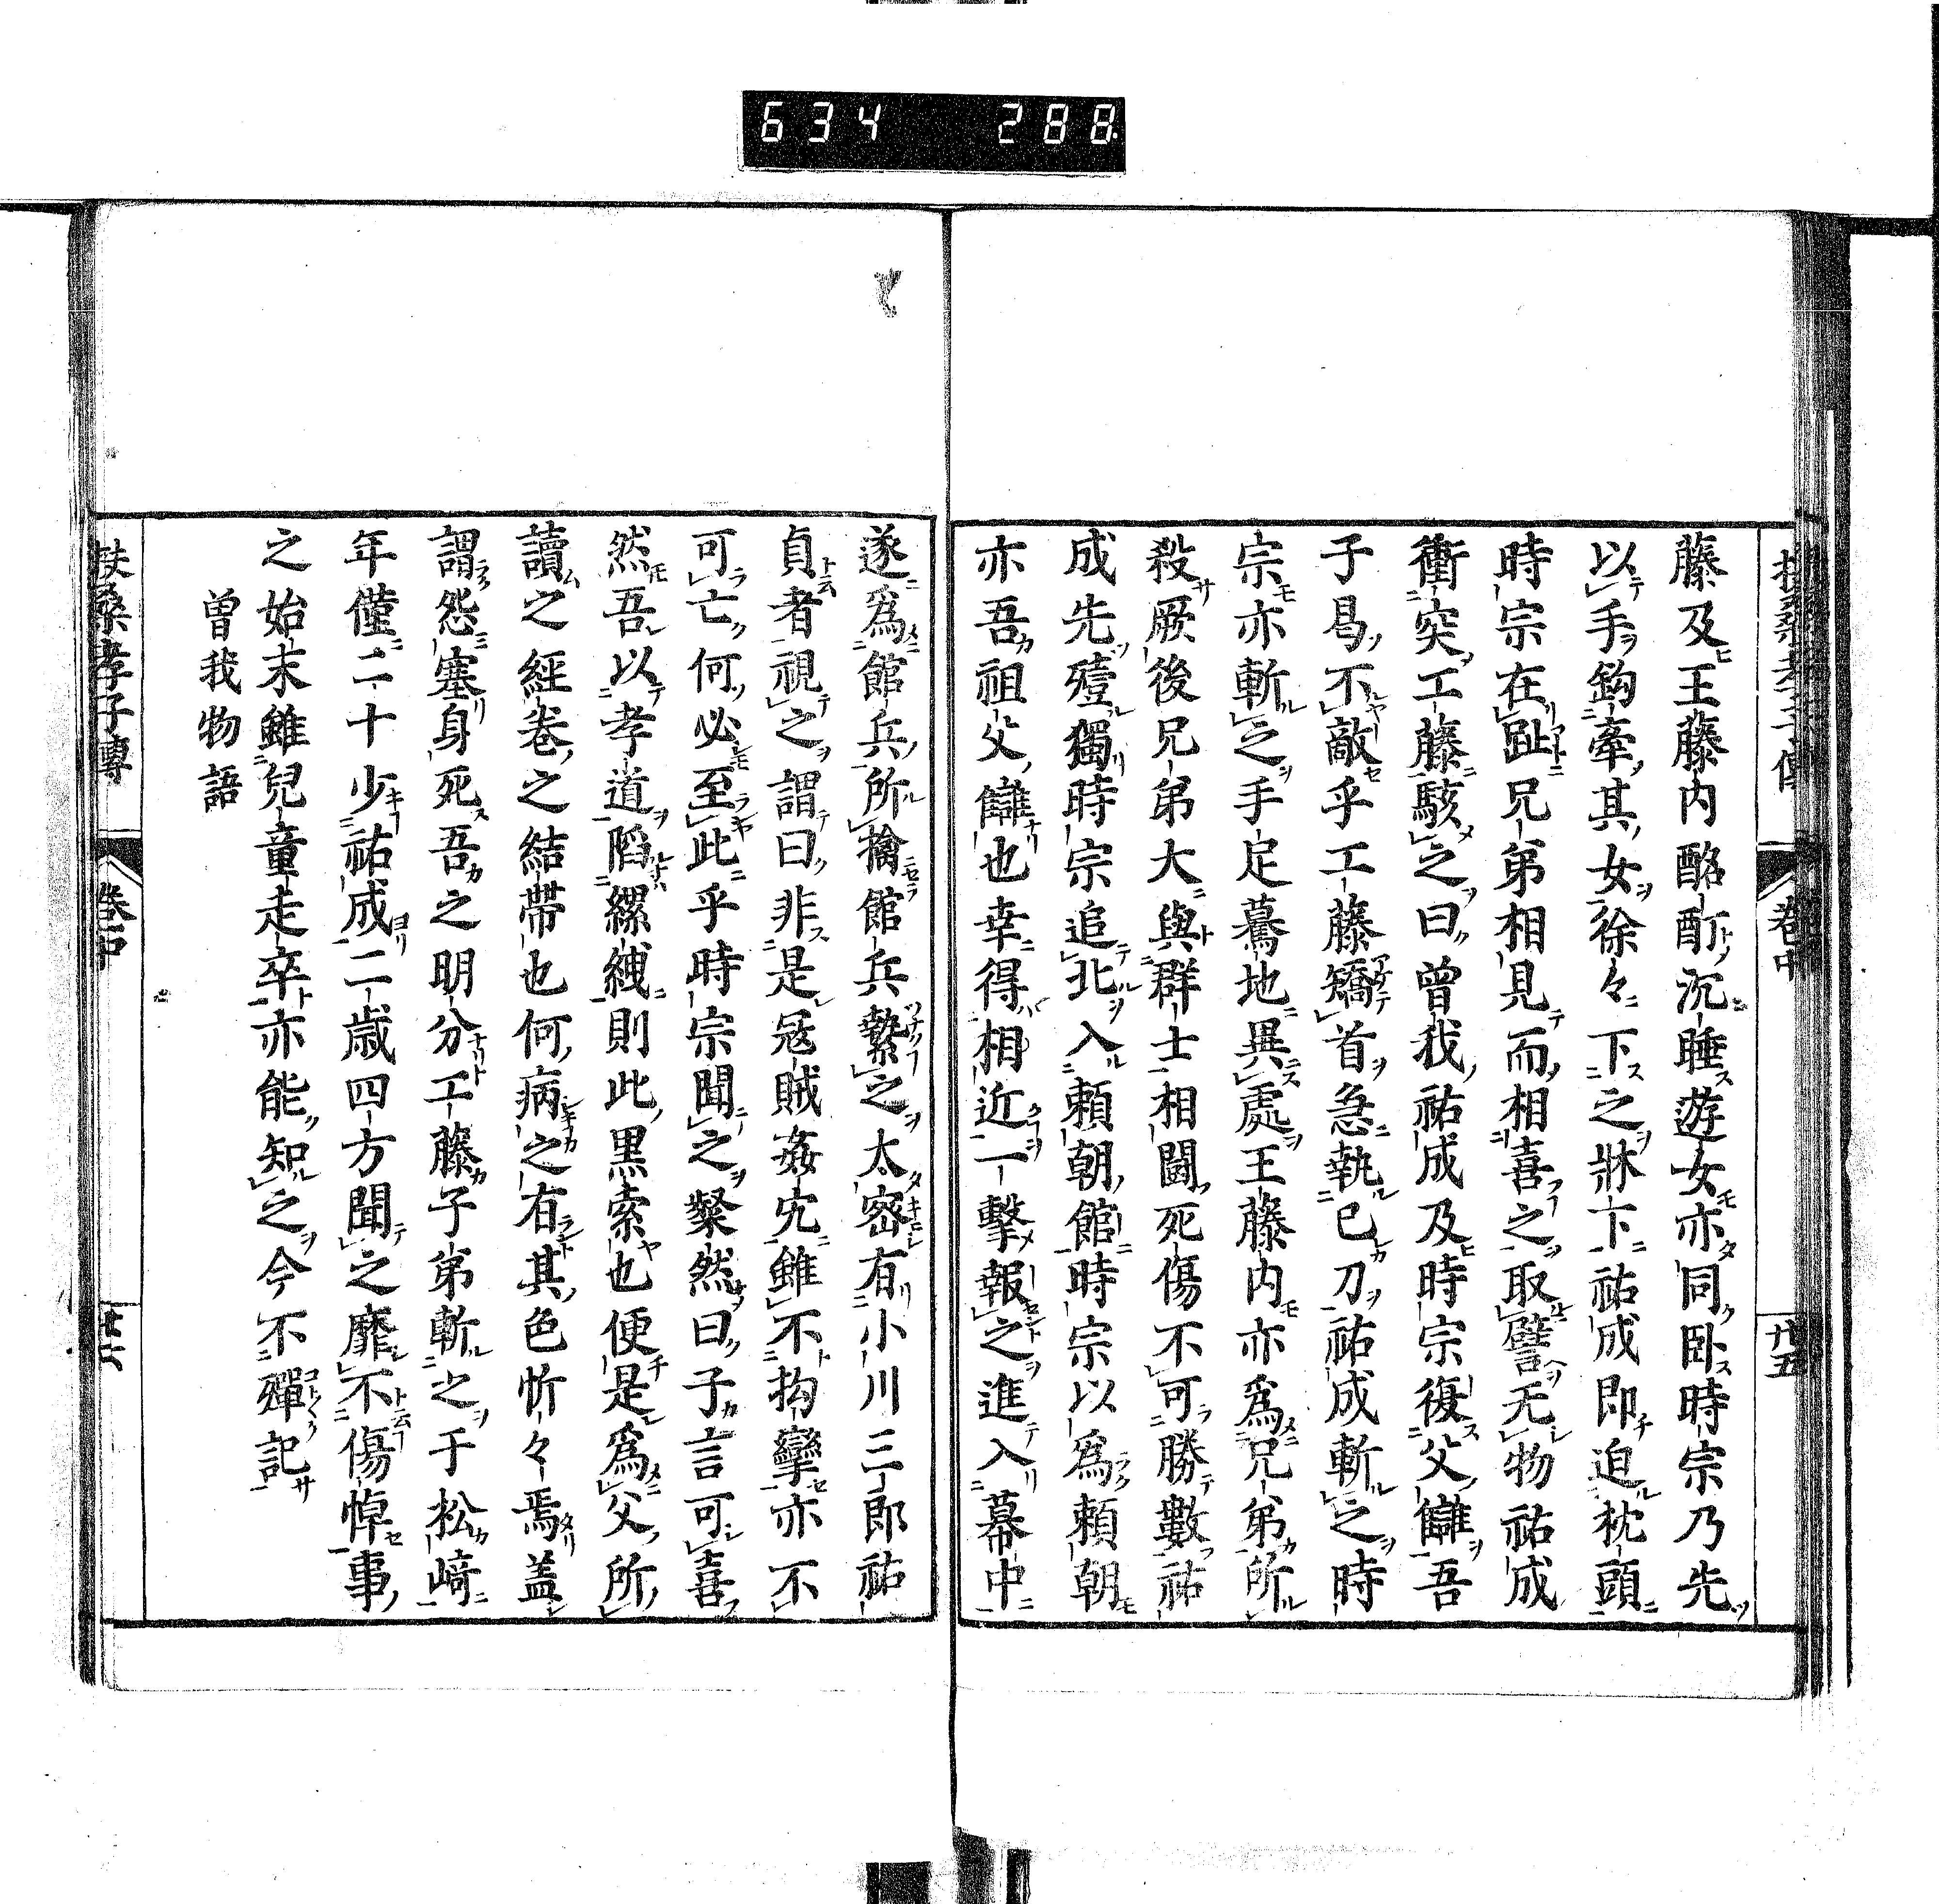 634 288
藤及王藤内酩酊沉睡遊女亦同卧時宗乃先
以手鈎牽其女徐々下之牀下祐成即迫枕頭
時宗在趾兄弟相見而相喜之取譬无物祐成
衝突工藤駭之曰曾我祐成及時宗復父讎吾
子曷不敵乎工藤矯首急執己刀祐成斬之時
宗亦斬之手足驀地異處王藤内亦爲兄弟所
殺厥後兄弟大與群士相闘死傷不可勝數祐
成先殪獨時宗追北入頼朝館時宗以爲頼朝
亦吾祖父讎也幸得相近一擊報之進入幕中
卷中
廿五
遂爲館兵所擒館兵繫之太密有小川三郎祐
貞者視之謂曰非是冦賊姦宄雖不拘攣亦不
可亡何必至此乎時宗聞之粲然曰子言可喜
然吾以孝道陷縲絏則此黒索也便是爲父所
讀之經卷之結帶也何病之有其色忻々焉盖
謂怨塞身死吾之明分工藤子弟斬之于松﨑
年僅二十少祐成二歳四方聞之靡不傷悼事
之始末雖兒童走卒亦能知之今不殫記
曾我物語
扶桑孝子傳
卷中
廿六